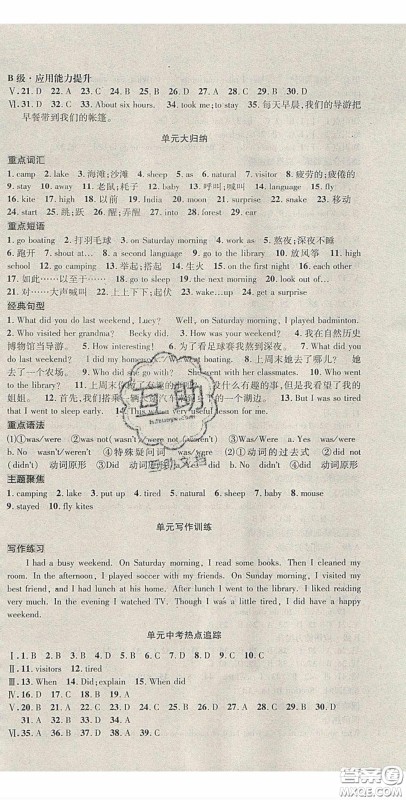 B 级·应用能力提升
Ⅴ. 21. D 22. A 23. D 24. C 25. C 26. C 27. B 28. C 29. D 30. C
Ⅵ. 31. D 32. C 33. D 34. About six hours. 35. 每天早晨,我们的导游把
早餐带到我们的帐篷。
单元大归纳
重点词汇
1. camp 2. lake 3. 海滩;沙滩 4. sheep 5. as 6. natural 7. visitor 8. 疲劳的;疲倦的
9. stay 10. away 11. 老鼠;耗子 12. baby 13. 呼叫;喊叫 14. language 15. fly
16. kite 17. high 18. 以前 19. India 20. moon 21. surprise 22. snake
23. start 24. 跳;跃 25. 醒;弄醒 26. forest 27. ear
重点短语
1. go boating 2. 打羽毛球 3. on Saturday morning 4. work as 5. 熬夜;深夜不睡
6. 跑开 7. shout at 8. a second language 9. go to the library 10. 放风筝 11. high
school 12. go camping 13. 举起;搭起 14. 生火 15. on the first night 16. each other
17. 如此……以至于…… 18. go to sleep 19. the next morning 20. look out of
21. 对……大声喊叫 22. 上上下下;起伏 23. wake…up 24. get a surprise
经典句型
1. What did you do last weekend, Lucy? Well, on Saturday morning, I played badminton.
2. Who visited her grandma? Becky did. 3. How was your weekend? 4. 我在自然历史
博物馆当导游。 5. How interesting! 6. 为了看足球赛我熬夜到深夜。 7. What did you
do last weekend? I did my homework. 8. 上周末她去了哪儿? 她去
了一个农场。 9. Who did she go with? She went with her classmates. 10. Who went
to the library? 11. 上周末
姐姐。 12. 首先,我们搭乘
but I went to sleep early. 15. This was a very useful lesson for me.
重点语法
(1)①was/were ②did (2)①was/were ②was not(wasn't) were not(weren't)
b. No wasn't/weren't ④特殊疑问词 was/were (3)①动词的过去式 ②did not
(didn't) 动词原形 ③Did 动词原形 a. did b. No didn't ④did 动词原形
主题聚焦
1. camping 2. lake 3. put up 4. tired 5. sheep 6. visitors 7. baby 8. mouse
9. stayed 10. fly kites
单元写作训练
写作练习
I had a busy weekend. On Saturday morning, I read some books. Then I cleaned my
room. In the afternoon, I played soccer with my friends. On Sunday morning, I finished
my homework. After lunch I went to the library. I read there for two hours. Then I went
home. In the evening I watched TV. Though I was a little tired, I did have a happy
weekend.
单元中考热点追踪
Ⅰ. 1. B 2. C 3. C 4. B 5. D 6. D 7. B 8. D 9. D 10. C
Ⅱ. 11. visitors 12. tired
Ⅲ. 13. When did 14. Did; explain 15. Why was
Ⅳ. 16. D 17. C 18. D 19. A 20. D 21. A 22. C 23. D 24. C 25. B
Ⅴ. 26. D 27. B 28. D 29. A 30. D
31. A 32. D 33. A 34. B
Ⅵ. 35. A 36. C 37. D 38. B 39. C
互助
互助文档
答案圈
MXQE.COM